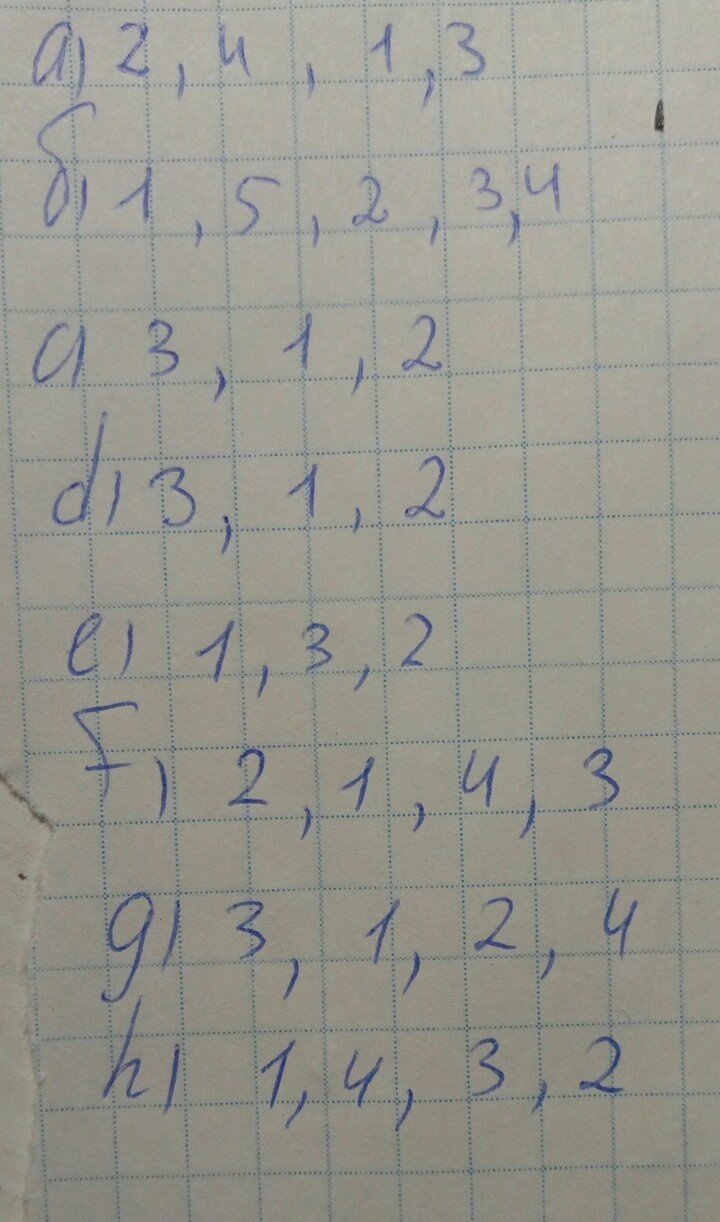 a) 2, 4, 1, 3
б) 1, 5, 2, 3, 4
a 3, 1, 2
d) 3, 1, 2
e) 1, 3, 2
F) 2, 1, 4, 3
g) 3, 1, 2, 4
h) 1, 4, 3, 2